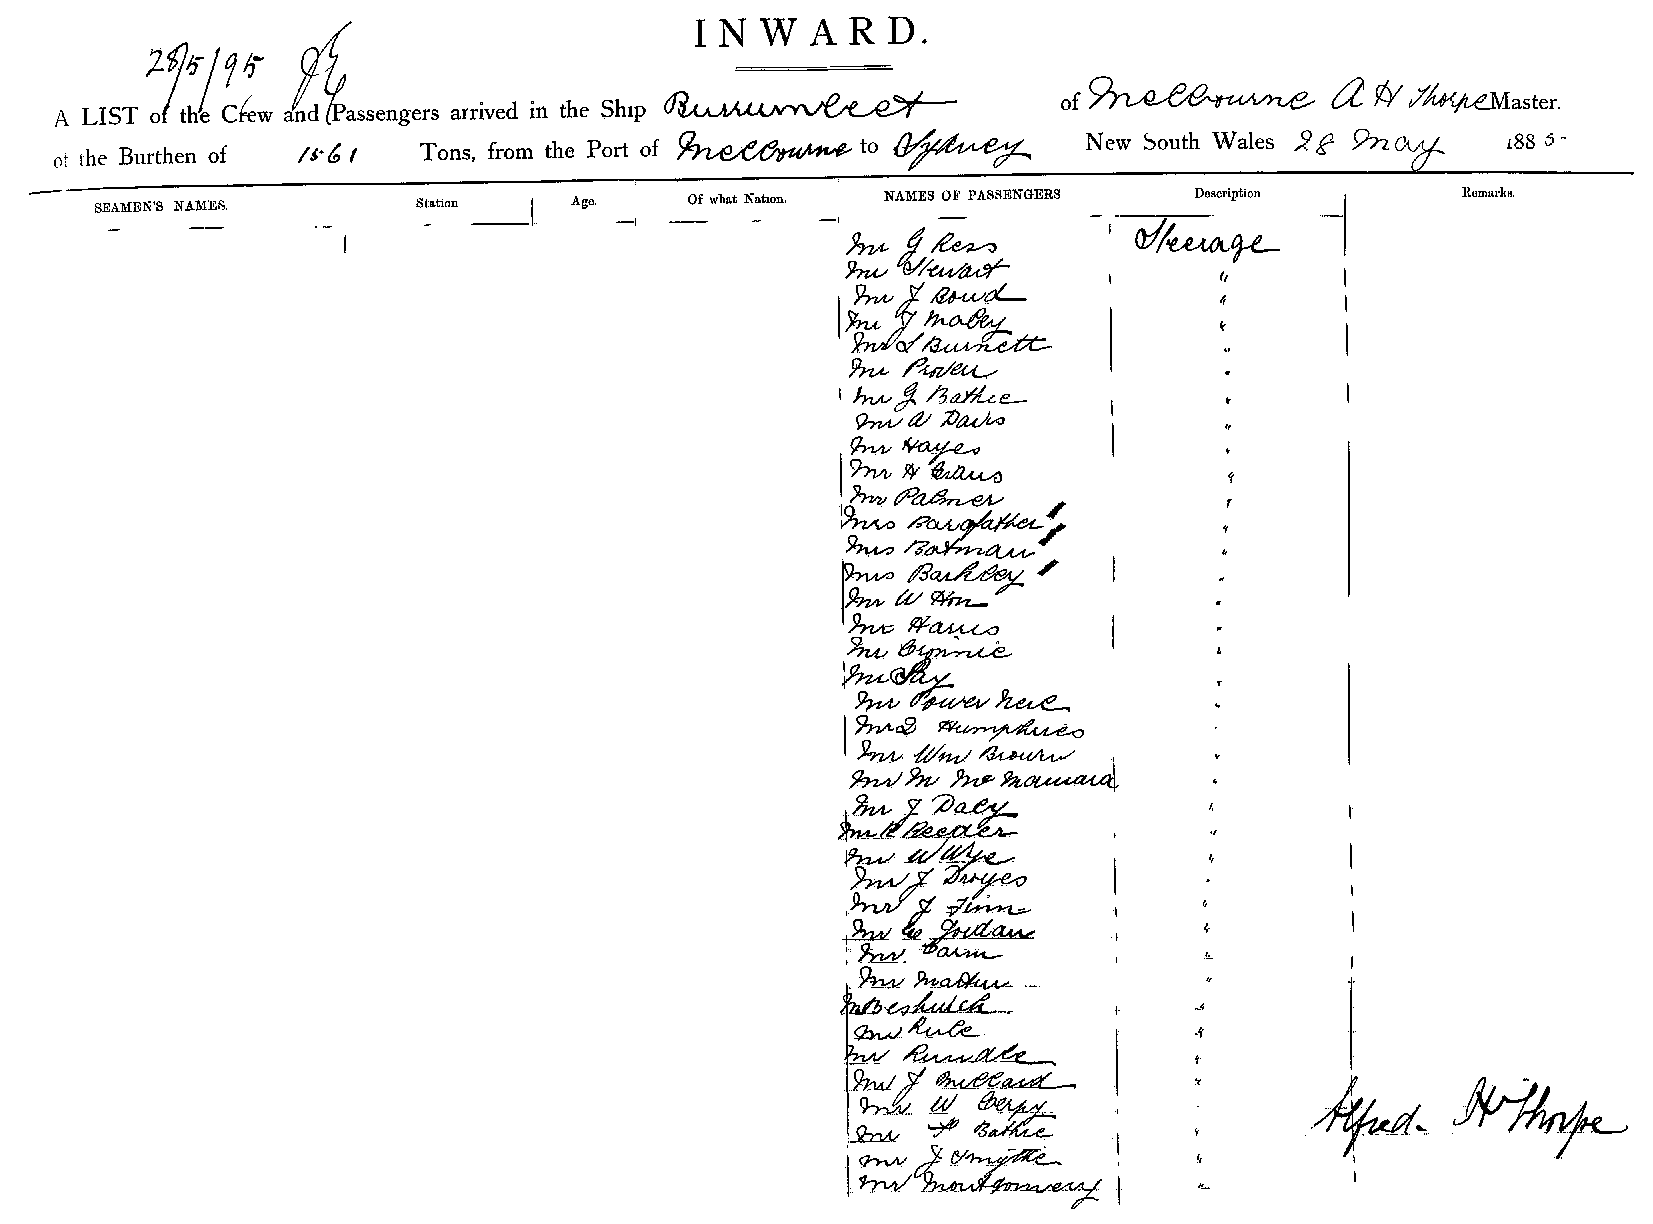 INWARD.
28/5/95
A LIST of the Crew and Passengers arrived in the Ship Burrumbeet of Melbourne A H Thorpe Master.
of the Burthen of 1561 Tons, from the Port of Melbourne to Sydney New South Wales 28 May 1885-
SEAMEN'S NAMES. Station Age. Of what Nation. NAMES OF PASSENGERS Description Remarks.
Mr G Ress Steerage
Mr Stewart "
Mr J Bowd "
Mr J Mabey "
Mr S Burnett "
Mr Proven "
Mr G Bathie "
Mr A Davis "
Mr Hayes "
Mr H Evans "
Mr Palmer "
Mrs Bargfather "
Mrs Batman "
Mrs Barkley "
Mr W Hon "
Mr Harris "
Mr "
Mr Say "
Mr Power Neil "
Mr Humphries "
Mr Wm Brown "
Mr M McMamara "
Mr J Daly "
Mr R Reeder "
Mr W Wye "
Mr J "
Mr J Finn "
Mr Jordan "
Mr "
Mr "
Mr "
Mr Rule "
Mr Rundle "
Mr J Millard "
Mr W "
Alfred H Thorpe
Mr Bathie "
Mr J Smythe "
Mr Montgomery "